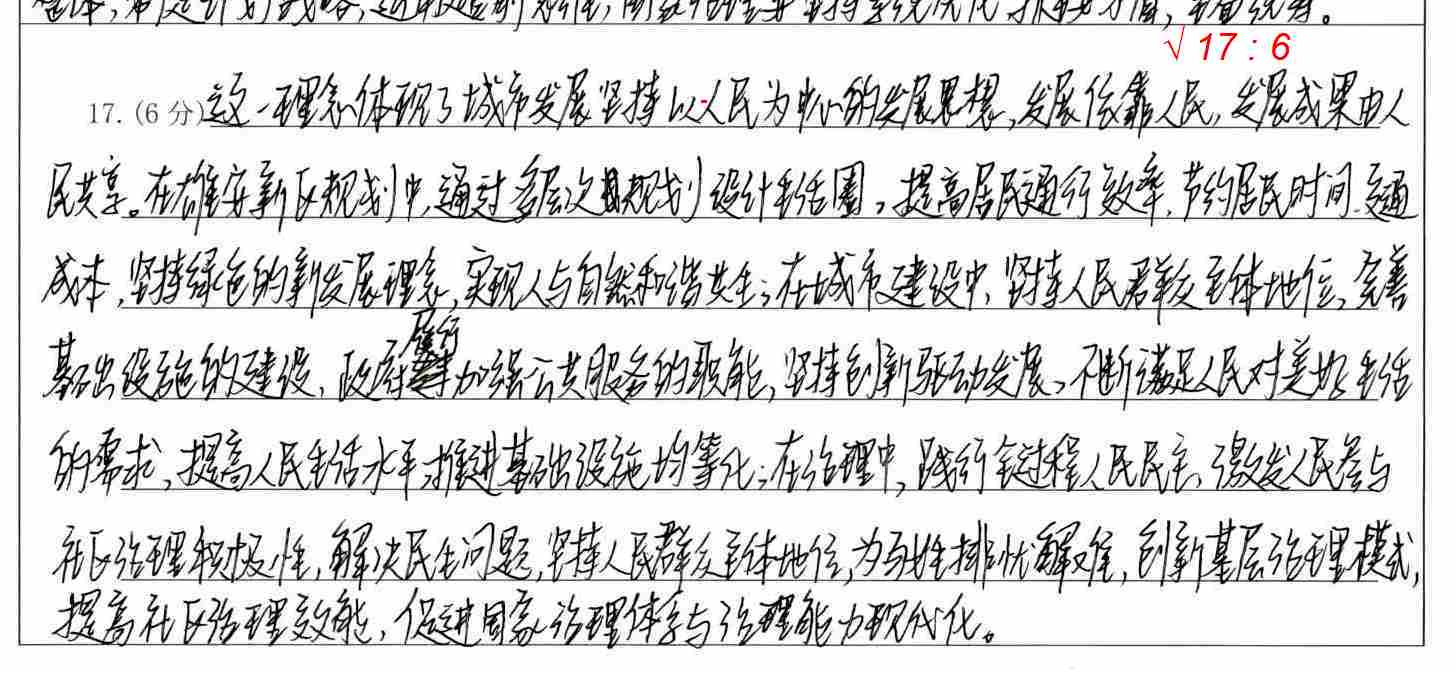 √ 17 : 6
17. (6 分) 这一理念体现了城市发展坚持以人民为中心的发展思想,发展依靠人民,发展成果由人
民共享。在雄安新区规划中,通过多层次规划设计生活圈,提高居民通行效率,节约居民时间、交通
成本,坚持绿色的新发展理念,实现人与自然和谐共生;在城市建设中,坚持人民群众主体地位,完善
基础设施的建设,政府履行加强公共服务的职能,坚持创新驱动发展,不断满足人民对美好生活
的需求,提高人民生活水平,推进基础设施均等化;在治理中,践行全过程人民民主,激发人民参与
社区治理积极性,解决民生问题,坚持人民群众主体地位,为排忧解难,创新基层治理模式,
提高社区治理效能,促进国家治理体系与治理能力现代化。